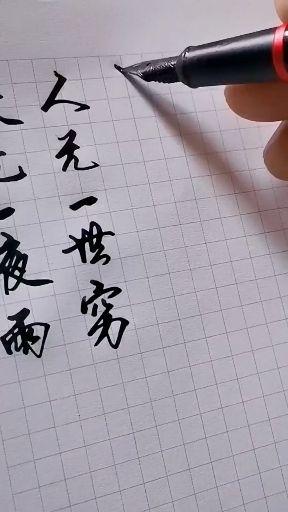 天无一夜雨
人无一世穷